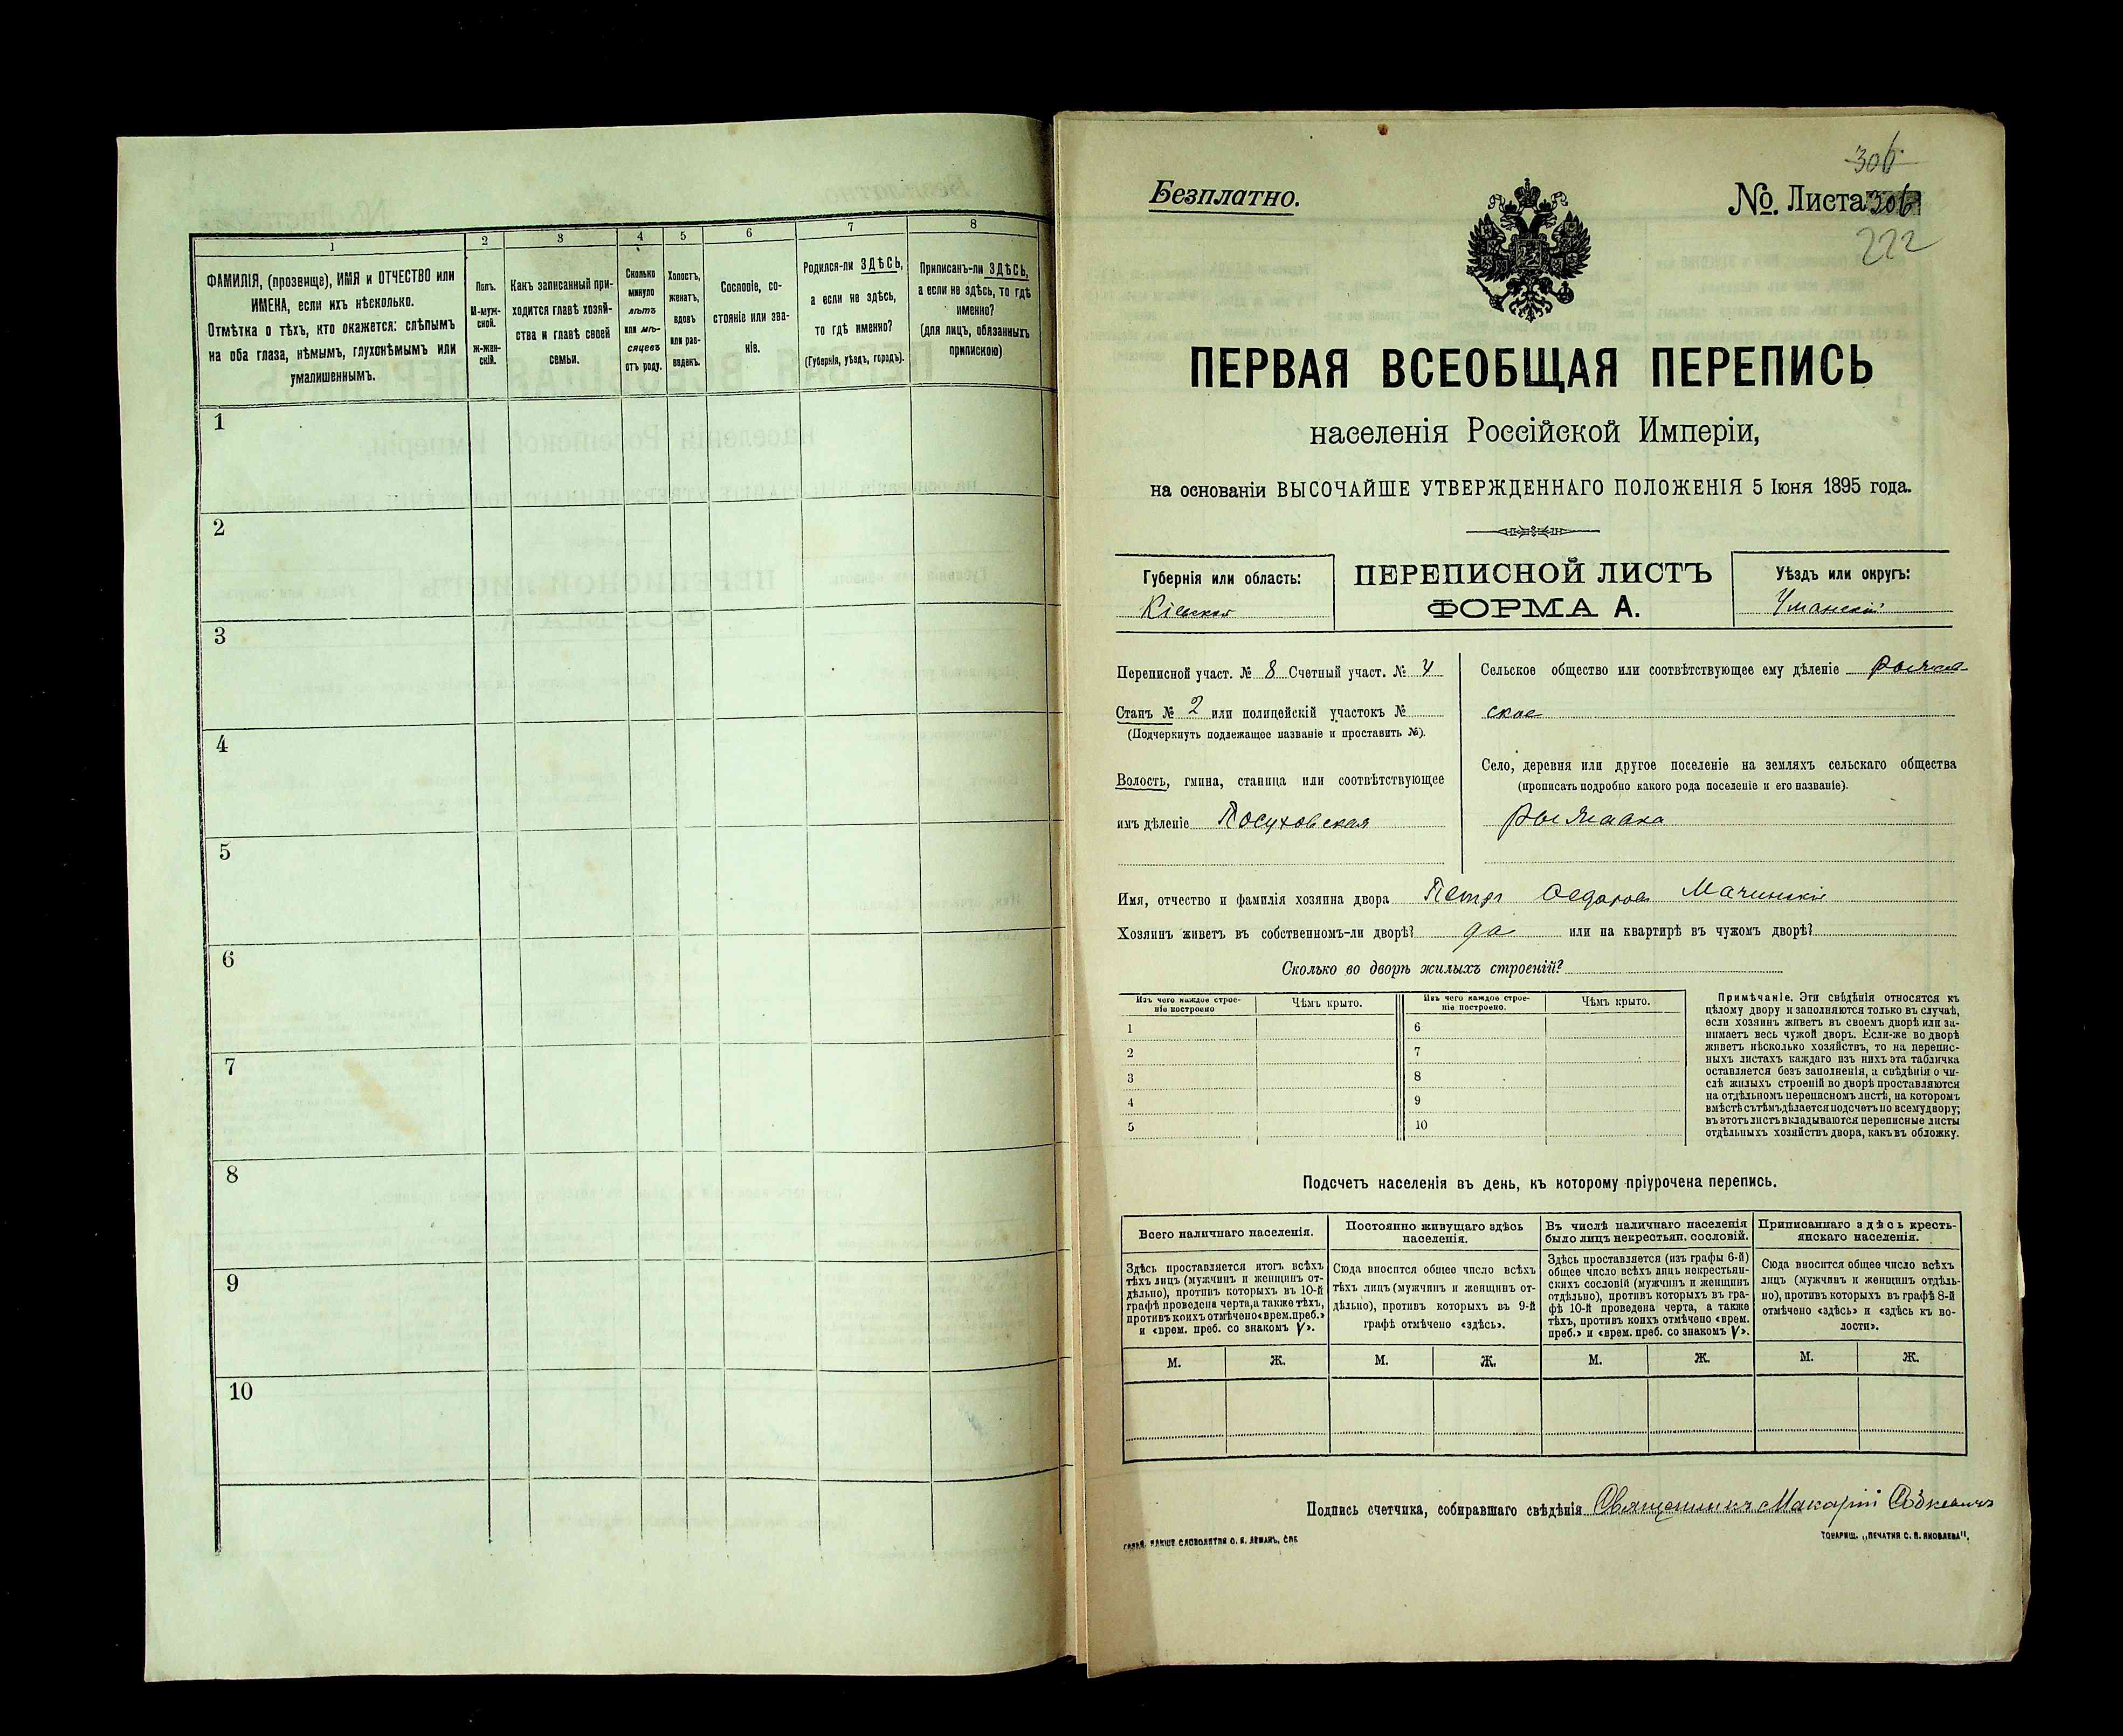 1 2 3 4 5 6 7 8
ФАМИЛІЯ, (прозвище), ИМЯ и ОТЧЕСТВО или
ИМЕНА, если ихъ нѣсколько.
Отмѣтка о тѣхъ, кто окажется: слѣпымъ
на оба глаза, нѣмымъ, глухонѣмымъ или
умалишеннымъ.
Полъ.
М-муж-
ской.
Ж-жен-
скій.
Какъ записанный при-
ходится главѣ хозяй-
ства и главѣ своей
семьи.
Сколько
минуло
лѣтъ
или мѣ-
сяцевъ
отъ роду.
Холостъ,
женатъ,
вдовъ
или раз-
веденъ.
Сословіе, со-
стояніе или зва-
ніе.
Родился-ли ЗДѢСЬ,
а если не здѣсь,
то гдѣ именно?
(Губернія, уѣздъ, городъ).
Приписанъ-ли ЗДѢСЬ,
а если не здѣсь, то гдѣ
именно?
(для лицъ, обязанныхъ
припискою)
1
2
3
4
5
6
7
8
9
10
306
Безплатно.
№. Листа 306
222
ПЕРВАЯ ВСЕОБЩАЯ ПЕРЕПИСЬ
населенія Россійской Имперіи,
на основаніи ВЫСОЧАЙШЕ УТВЕРЖДЕННАГО ПОЛОЖЕНІЯ 5 Іюня 1895 года.
Губернія или область:
Кіевская
ПЕРЕПИСНОЙ ЛИСТЪ
ФОРМА А.
Уѣздъ или округъ:
Уманскій
Переписной участ. № 8 Счетный участ. № 4
Станъ № 2 или полицейскій участокъ №
(Подчеркнуть подлежащее названіе и проставить №).
Волость, гмина, станица или соотвѣтствующее
имъ дѣленіе Посуховская
Сельское общество или соотвѣтствующее ему дѣленіе
ское
Село, деревня или другое поселеніе на земляхъ сельскаго общества
(прописать подробно какого рода поселеніе и его названіе).
Имя, отчество и фамилія хозяина двора Петръ Ѳедоровъ Мачинскій
Хозяинъ живетъ въ собственномъ-ли дворѣ? да или на квартирѣ въ чужомъ дворѣ?
Сколько во дворѣ жилыхъ строеній?
Изъ чего каждое строе-
ніе построено
Чѣмъ крыто.
Изъ чего каждое строе-
ніе построено.
Чѣмъ крыто.
1 6
2 7
3 8
4 9
5 10
Примѣчаніе. Эти свѣдѣнія относятся къ
цѣлому двору и заполняются только въ случаѣ,
если хозяинъ живетъ въ своемъ дворѣ или за-
нимаетъ весь чужой дворъ. Если-же во дворѣ
живетъ нѣсколько хозяйствъ, то на перепис-
ныхъ листахъ каждаго изъ нихъ эта табличка
оставляется безъ заполненія, а свѣдѣнія о чи-
слѣ жилыхъ строеній во дворѣ проставляются
на отдѣльномъ переписномъ листѣ, на которомъ
вмѣстѣ съ тѣмъ дѣлается подсчетъ по всему двору;
въ этотъ листъ вкладываются переписные листы
отдѣльныхъ хозяйствъ двора, какъ въ обложку.
Подсчетъ населенія въ день, къ которому пріурочена перепись.
Всего наличнаго населенія.
Постоянно живущаго здѣсь
населенія.
Въ числѣ наличнаго населенія
было лицъ некрестьян. сословій.
Приписаннаго здѣсь кресть-
янскаго населенія.
Здѣсь проставляется итогъ всѣхъ
тѣхъ лицъ (мужчинъ и женщинъ от-
дѣльно), противъ которыхъ въ 10-й
графѣ проведена черта, а также тѣхъ,
противъ коихъ отмѣчено «врем. преб.»
и «врем. преб. со знакомъ V».
Сюда вносится общее число всѣхъ
тѣхъ лицъ (мужчинъ и женщинъ от-
дѣльно), противъ которыхъ въ 9-й
графѣ отмѣчено «здѣсь».
Здѣсь проставляется (изъ графы 6-й)
общее число всѣхъ лицъ некрестьян-
скихъ сословій (мужчинъ и женщинъ
отдѣльно), противъ которыхъ въ гра-
фѣ 10-й проведена черта, а также
тѣхъ, противъ коихъ отмѣчено «врем.
преб.» и «врем. преб. со знакомъ V».
Сюда вносится общее число всѣхъ
лицъ (мужчинъ и женщинъ отдѣль-
но), противъ которыхъ въ графѣ 8-й
отмѣчено «здѣсь» и «здѣсь къ во-
лости».
М. Ж. М. Ж. М. Ж. М. Ж.
Подпись счетчика, собиравшаго свѣдѣнія Священникъ Макарій
СЛОВОЛИТНЯ О. И. ЛЕМАНЪ, СПБ.
ТОВАРИЩ. „ПЕЧАТНЯ С. П. ЯКОВЛЕВА“.